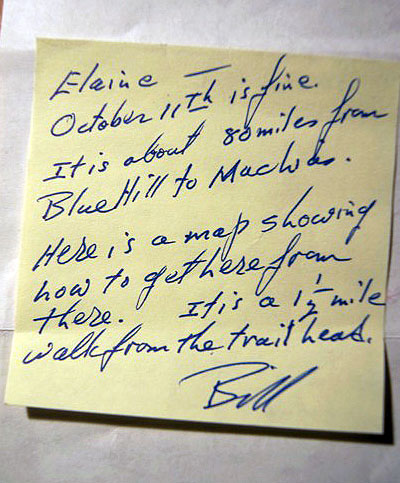 Elaine —
October 11th is fine.
It is about 80 miles from
Blue Hill to Machias.
Here is a map showing
how to get here from
there. It is a 1 1/2 mile
walk from the trail head.
Bill